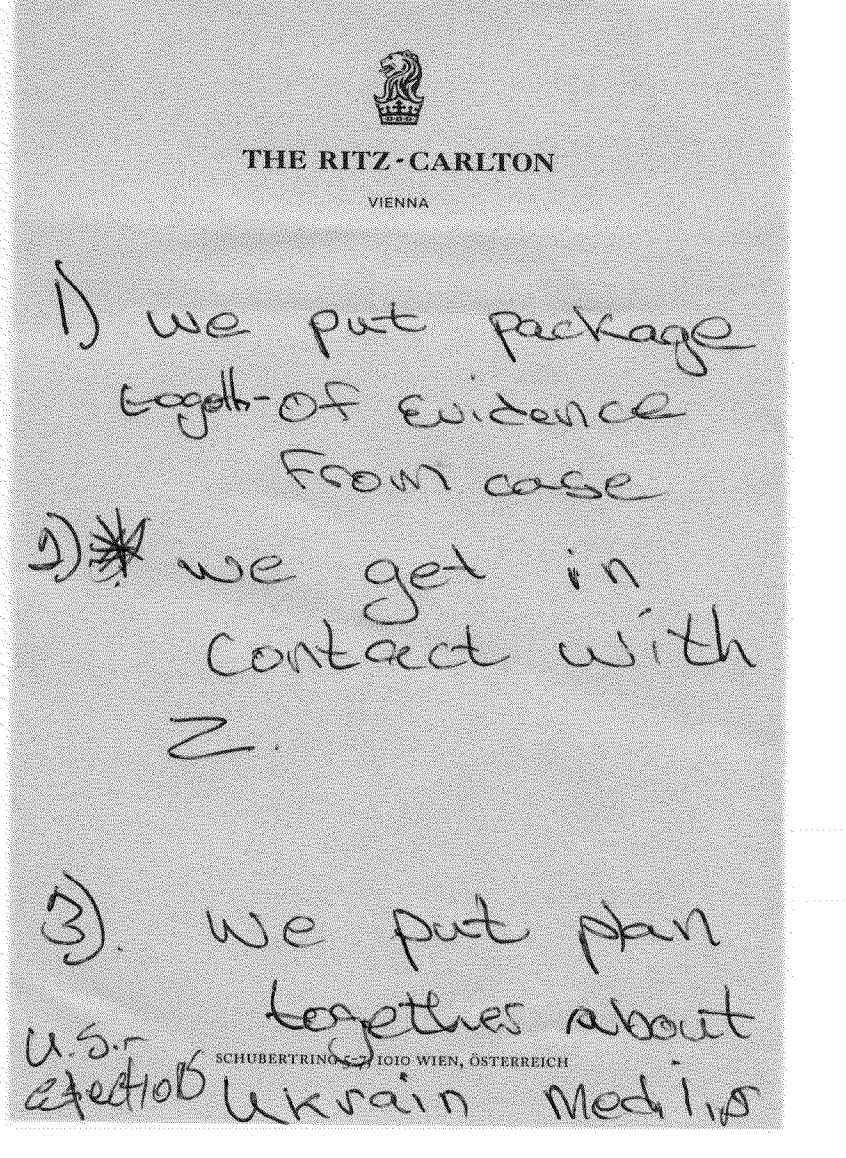 THE RITZ-CARLTON
VIENNA
1) we put package
togeth- of evidence
From case
2) * we get in
contact with
Z.
3). we put plan
together about
U.S.
SCHUBERTRING 5-7, 1010 WIEN, ÖSTERREICH
elections Ukrain Media